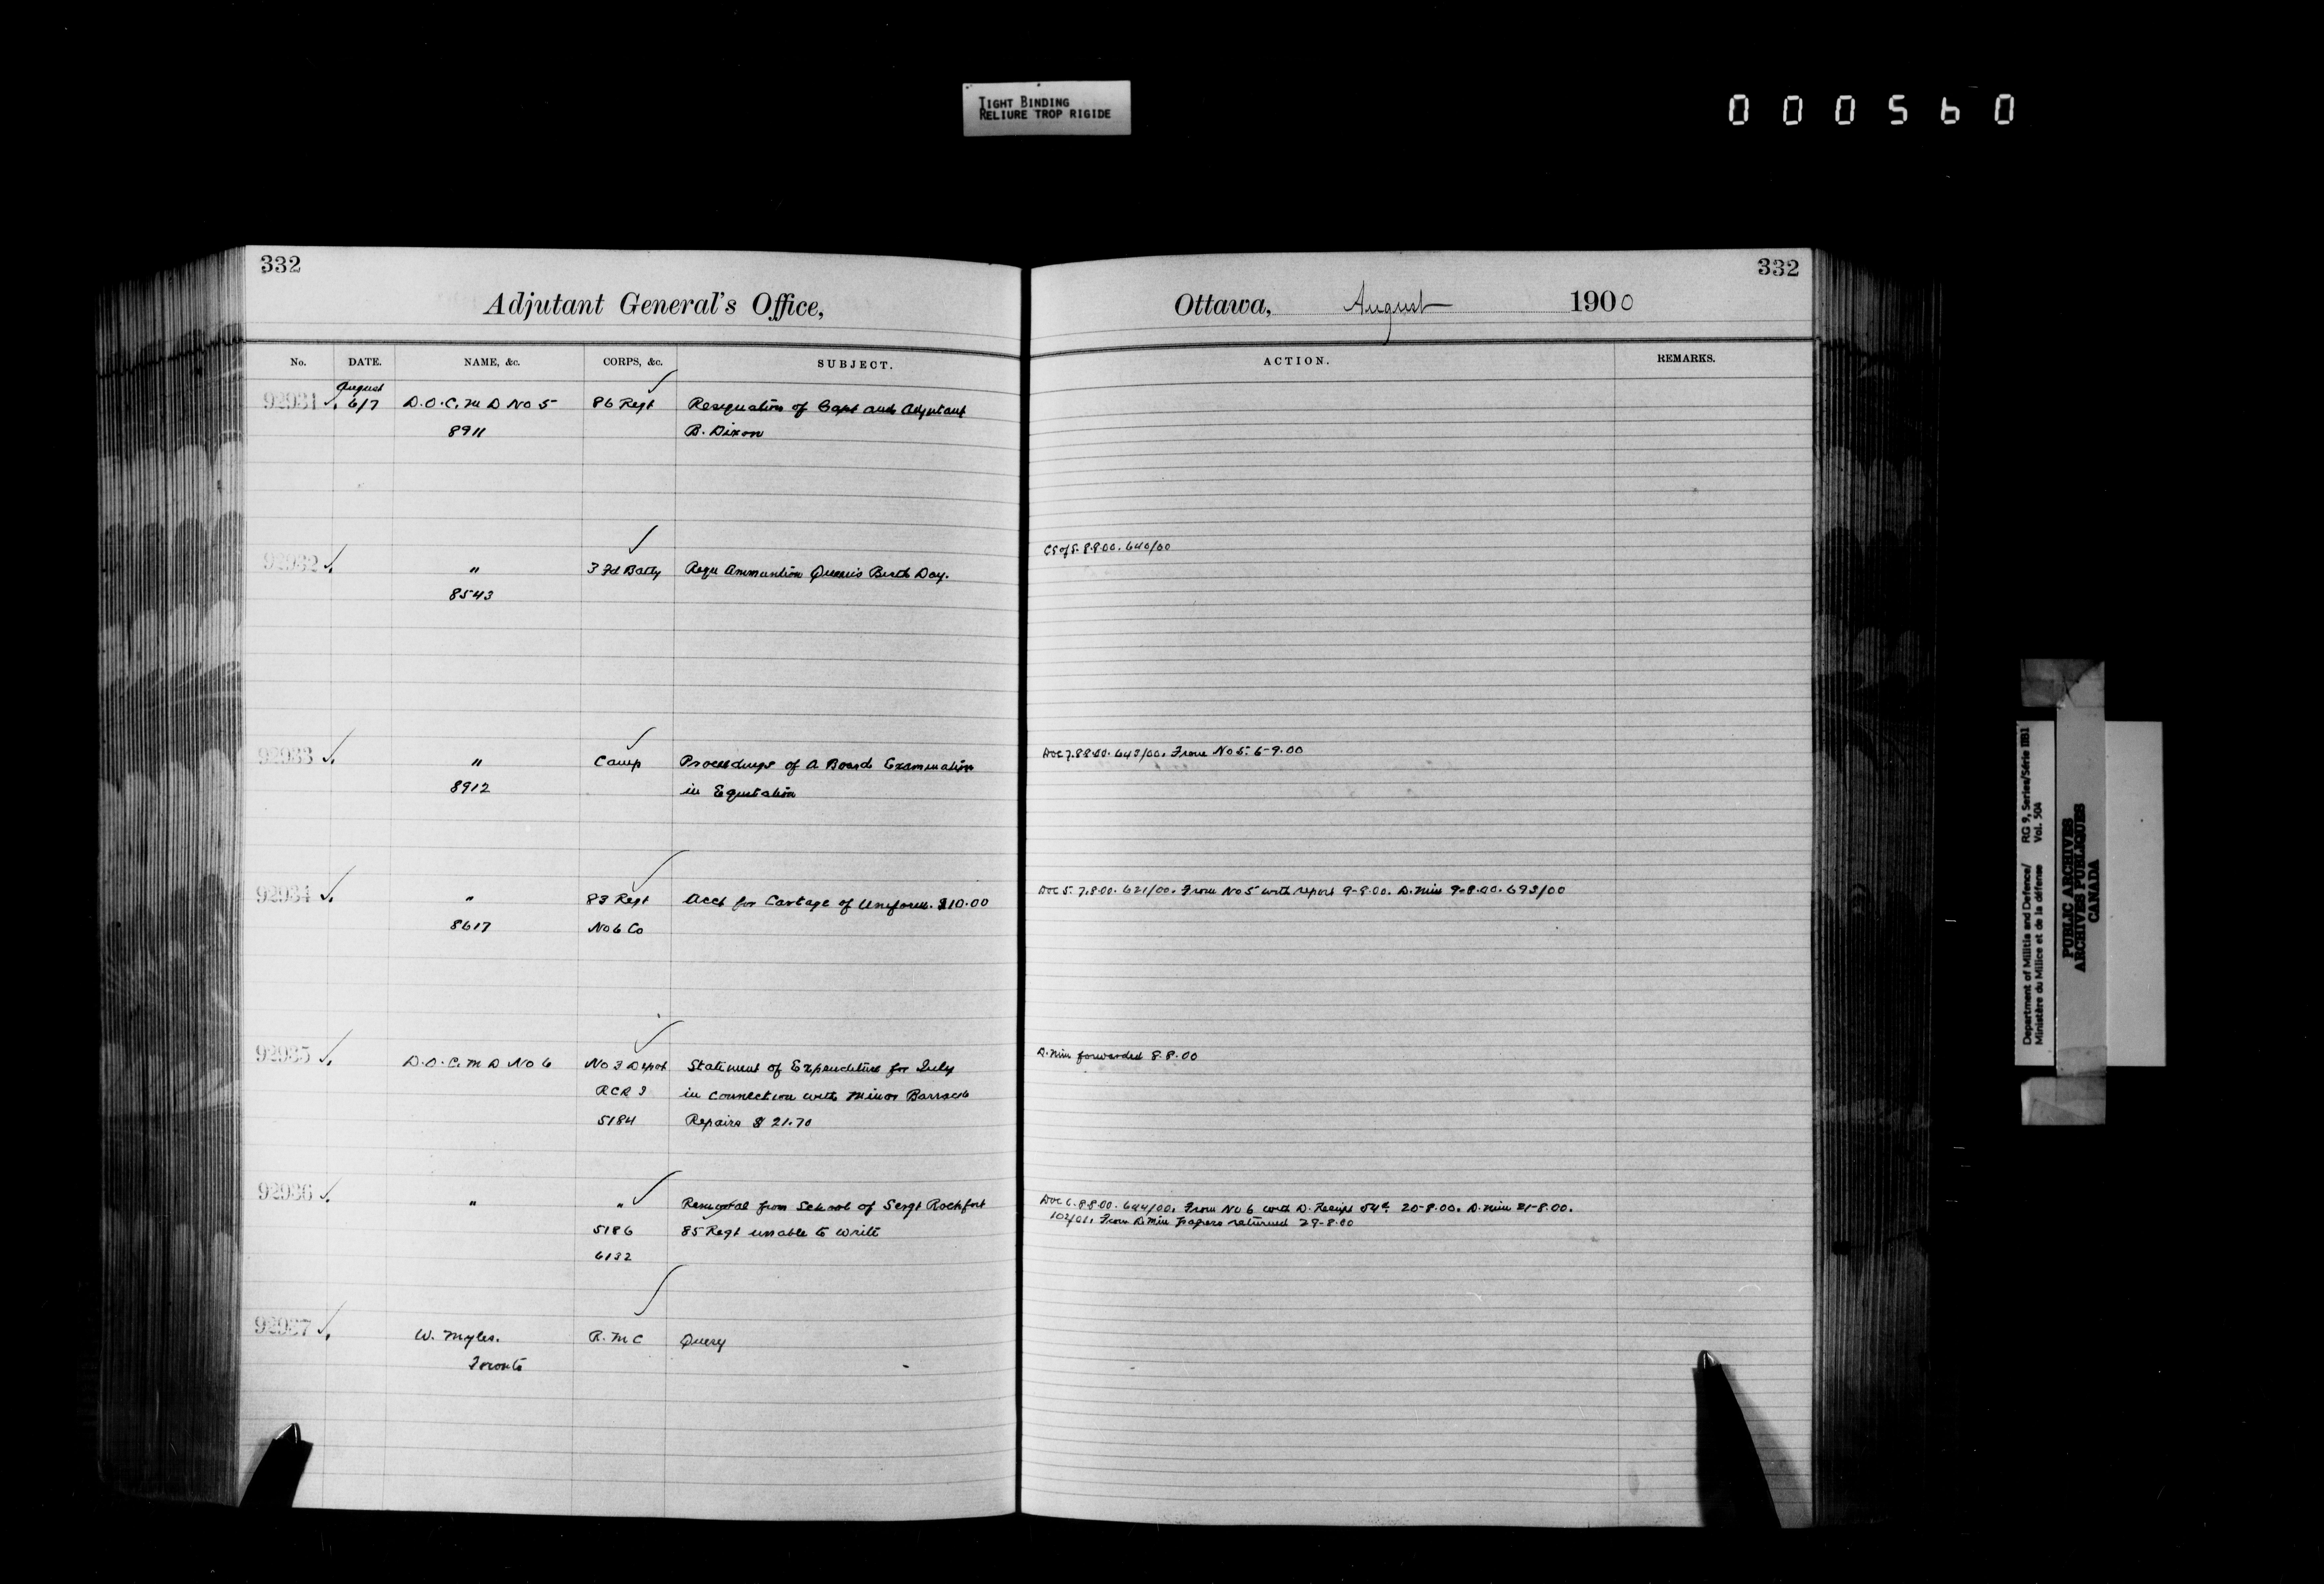 TIGHT BINDING
RELIURE TROP RIGIDE
000560
332
Adjutant General's Office,
No. DATE. NAME, &c. CORPS, &c. SUBJECT.
August
92931 6/7 D.O.C. M D No 5 86 Regt Resignation of Capt and Adjutant
8911 B. Dixon
92932 " 3 Fd Batty Requ Ammuntion Queen's Birth Day.
8543
92933 " Camp Proceedings of a Board Examination
8912 in Equitation
92934 " 83 Regt Acct for Cartage of Uniform. $10.00
8617 No 6 Co
92935 D.O.C. M D No 6 No 3 Depot Statement of Expenditure for July
RCRI in connection with Minor Barrack
5184 Repairs $ 21.70
92936 " " Removal from School of Sergt Rochfort
5186 85 Regt unable to write
6132
92937 W. Myles. R. M C Query
Toronto
332
Ottawa, August 1900
ACTION. REMARKS.
CS of S. 8.8.00. 640/00
DOC 7.8.8.00. 643/00. From No 5. 6-9.00
DOC 5. 7.8.00. 621/00. From No 5 with report 9-8.00. D. Min 9-8.00. 693/00
D. Min forwarded 8.8.00
DOC 6. 8.8.00. 644/00. From No 6 with D. Receipt 20-8.00. D. Min 21-8.00.
From D Min papers returned 29-8.00
Department of Militia and Defence/ RG 9, Series/Série IIB1
Ministère du Milice et de la défense Vol. 504
PUBLIC ARCHIVES
ARCHIVES PUBLIQUES
CANADA